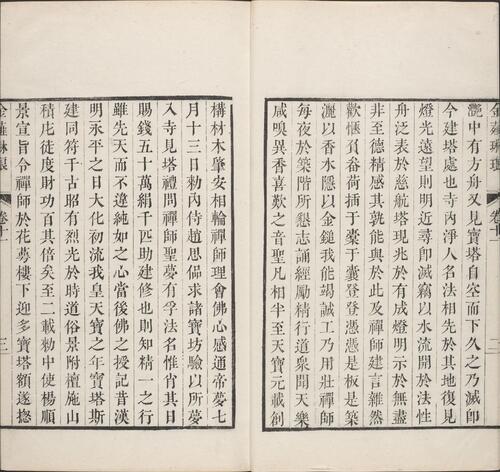 金薤琳琅 卷十一 二
灔中有方舟又見寶塔自空而下久之乃滅即
今建塔處也寺內淨人名法相先於其地復見
燈光遠望則明近尋即滅竊以水流開於法性
舟泛表於慈航塔現兆於有成燈明示於無盡
非至德精感其孰能與於此及禪師建言雜然
歡愜負畚荷插于橐于囊登登憑憑是板是築
灑以香水隱以金鎚我能竭誠工乃用壯禪師
每夜於築階所懇志誦經勵精行道眾聞天樂
咸嗅異香喜歎之音聖凡相半至天寶元載創
構材木肇安相輪禪師理會佛心感通帝夢七
月十三日勑內侍趙思偘求諸寶坊驗以所夢
入寺見塔禮問禪師聖夢有孚法名惟肖其日
賜錢五十萬絹千匹助建修也則知精一之行
雖先天而不違純如之心當後佛之授記昔漢
明永平之日大化初流我皇天寶之年寶塔斯
建同符千古昭有烈光於時道俗景附檀施山
積庀徒度財功百其倍矣至二載勑中使楊順
景宣旨令禪師於花萼樓下迎多寶塔額遂摠
金薤琳琅 卷十一 三